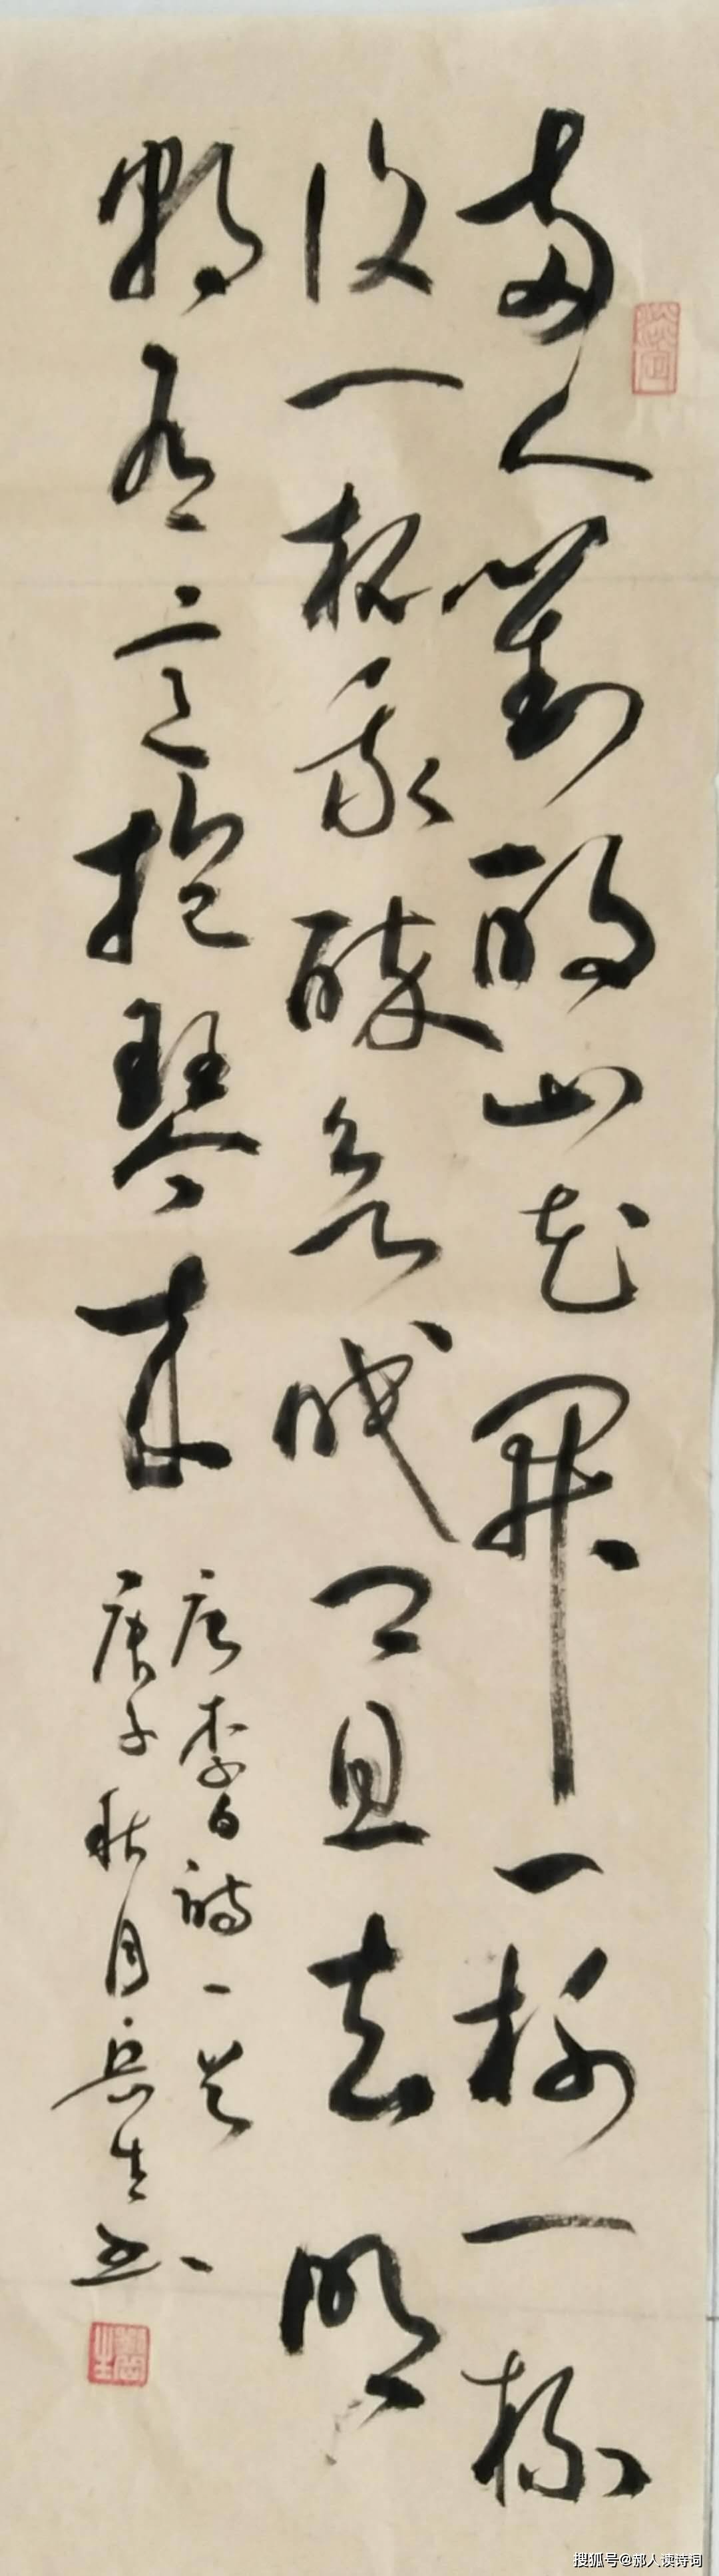 两人對酌山花開一杯一杯
復一杯我醉欲眠卿且去明
朝有意抱琴来
唐李白詩一首
庚子秋月岳生书
搜狐号@郝人读诗词